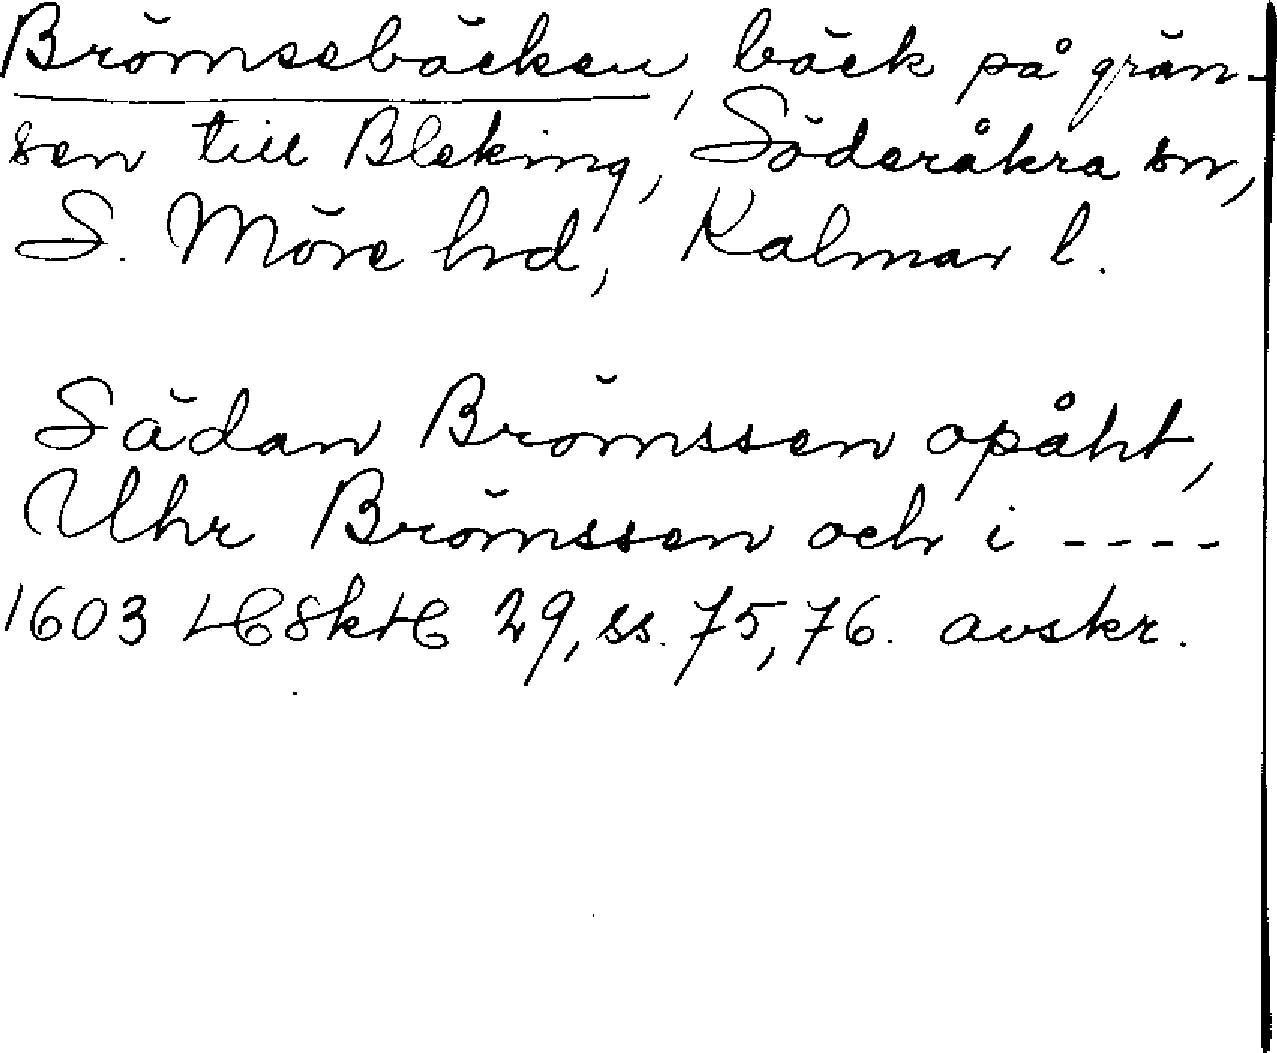 Brömsebäcken, bäck på grän-
sen till Bleking, Söderåkra sn,
S. Möre hd, Kalmar l.
Sädan Brömssen opåht,
Uhr Brömssen och i ----
1603 29, ss. 75, 76. avskr.